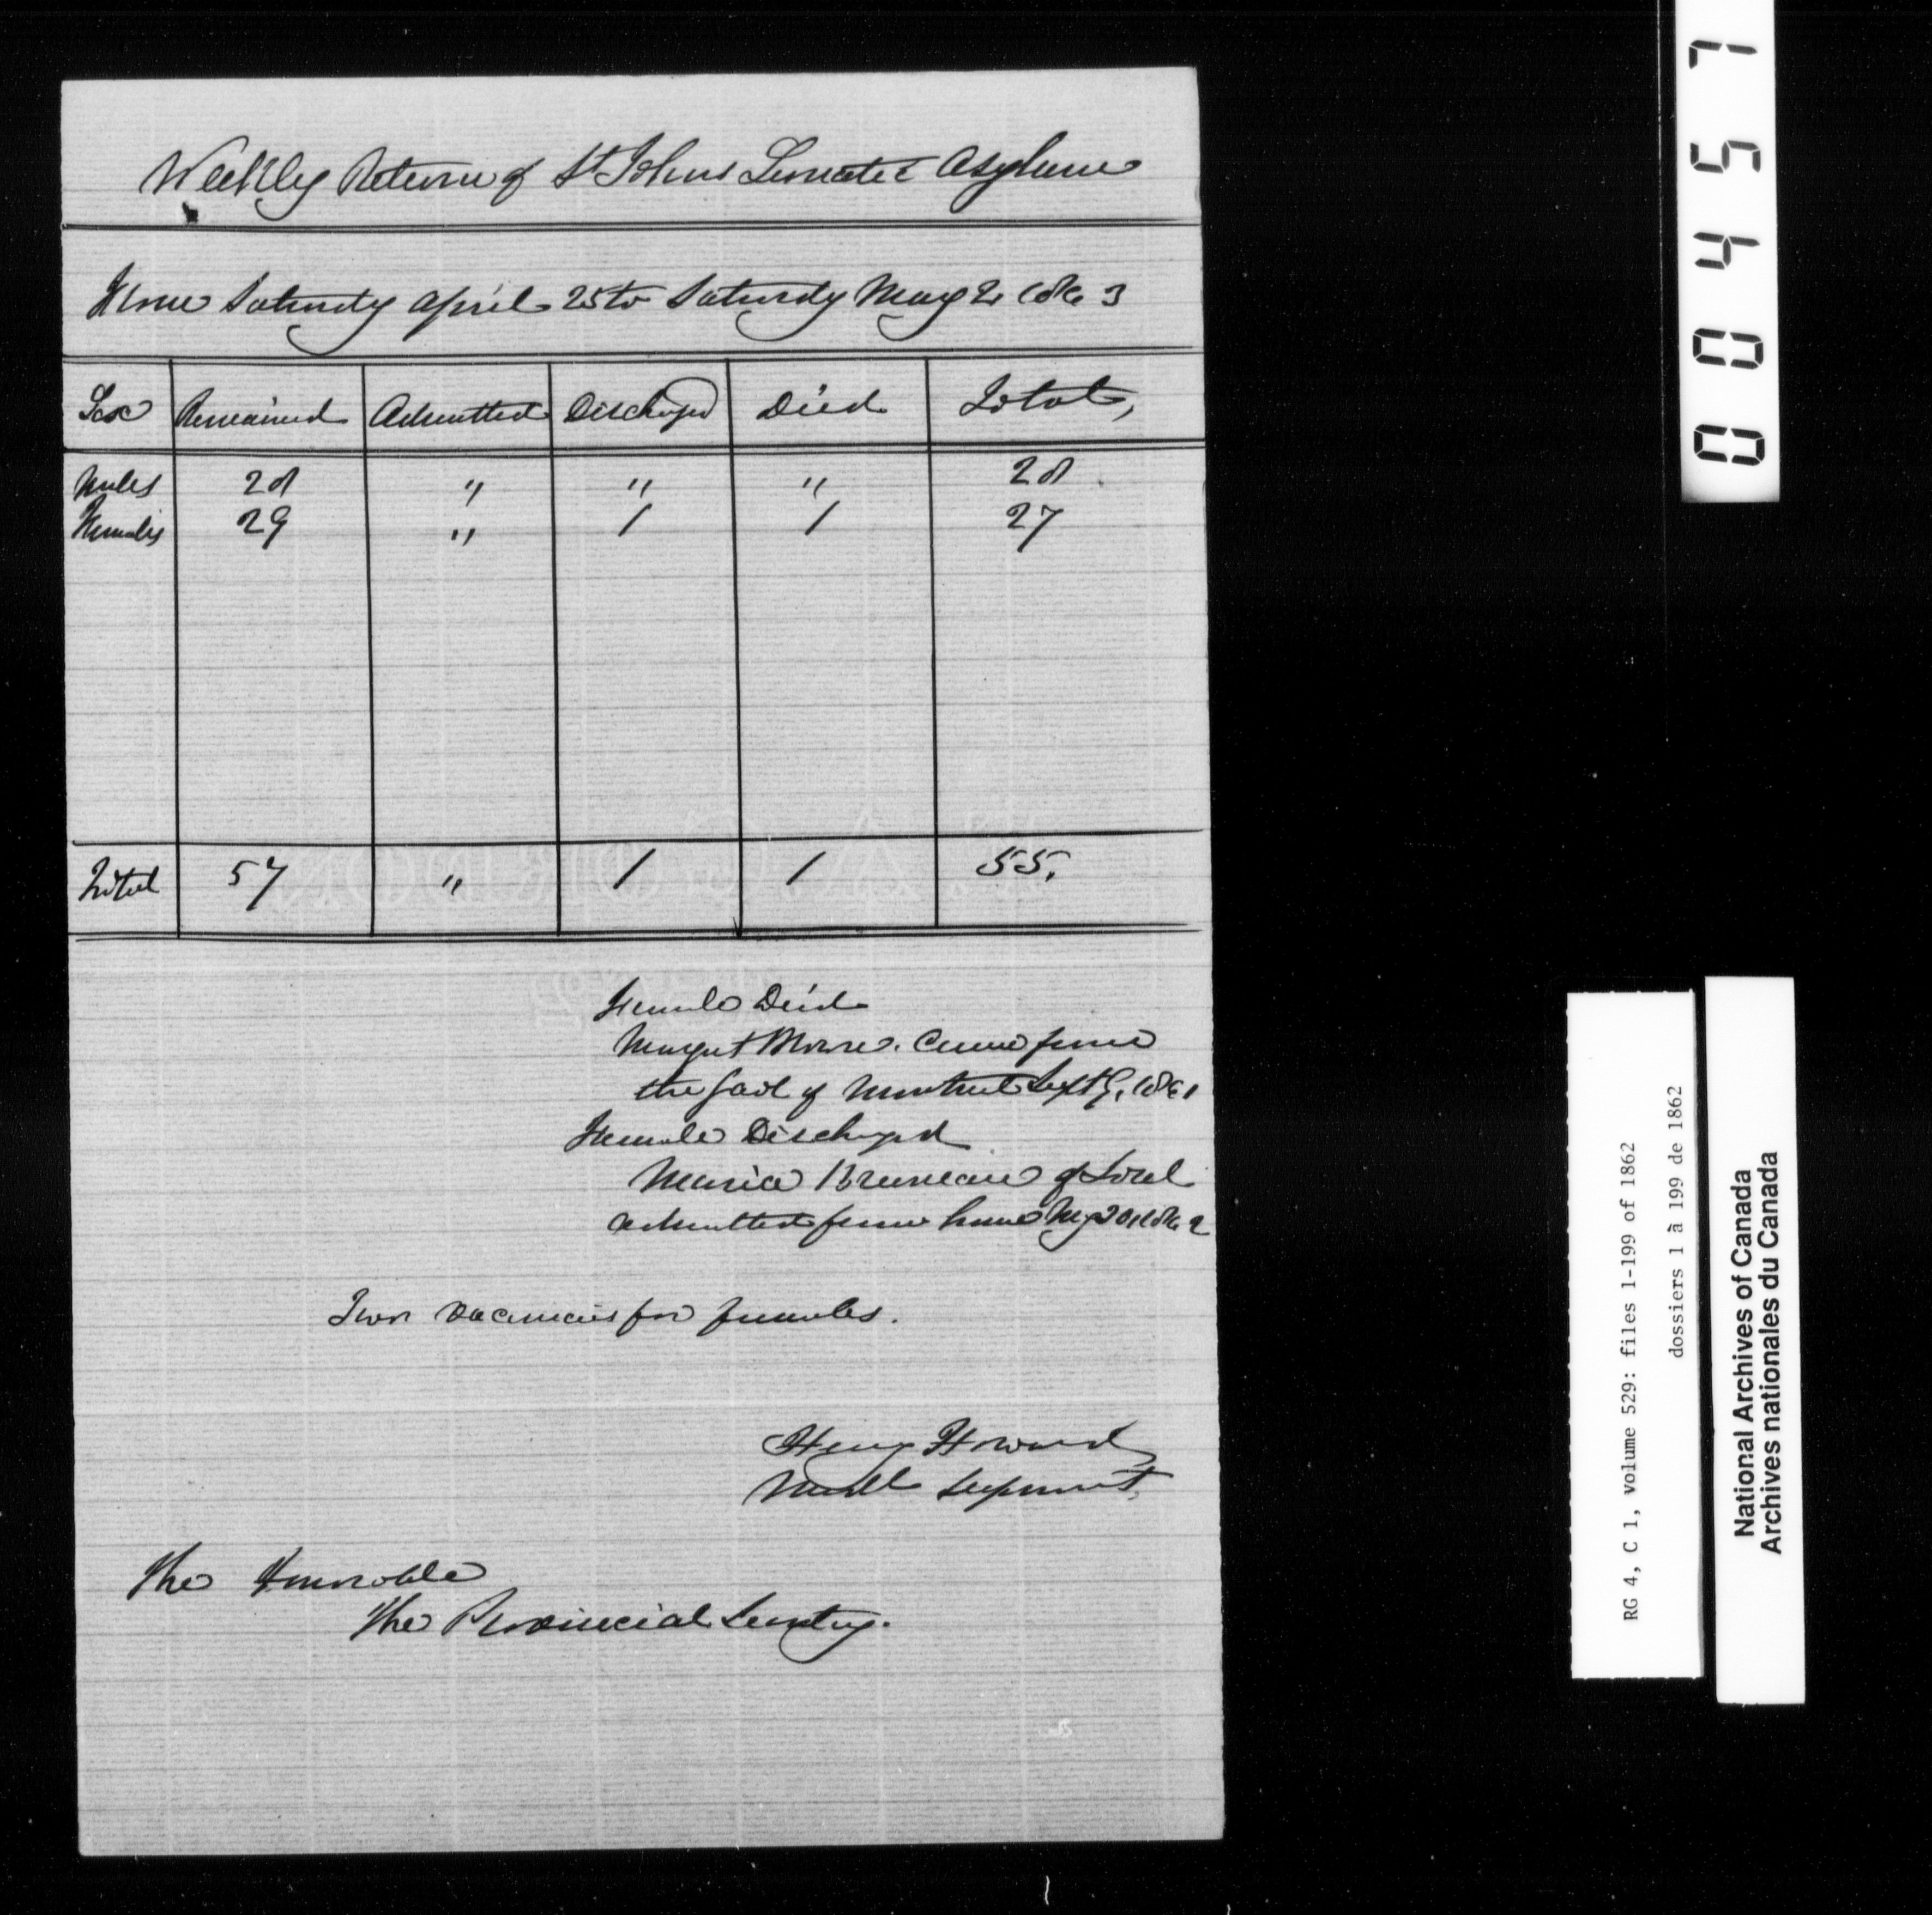 Weekly Return of St Johns Lunatic Asylum
From Saturday April 25 to Saturday May 2, 1863
Sex Remained Admitted Discharged Died Total,
Males 28 " " " 28
Females 29 " 1 1 27
Total 57 " 1 1 55.
Female Died
Margret Moore. Came from
the Gaol of Montreal Sept 9, 1861
Female Discharged
Maria Bruneau of Sorel
admitted from home 1862
Two vacancies for females.
Henry Howard
Medl Superint,
The Honorable
The Provincial Secretary.
00457
RG 4, C 1, volume 529: files 1-199 of 1862
dossiers 1 à 199 de 1862
National Archives of Canada
Archives nationales du Canada